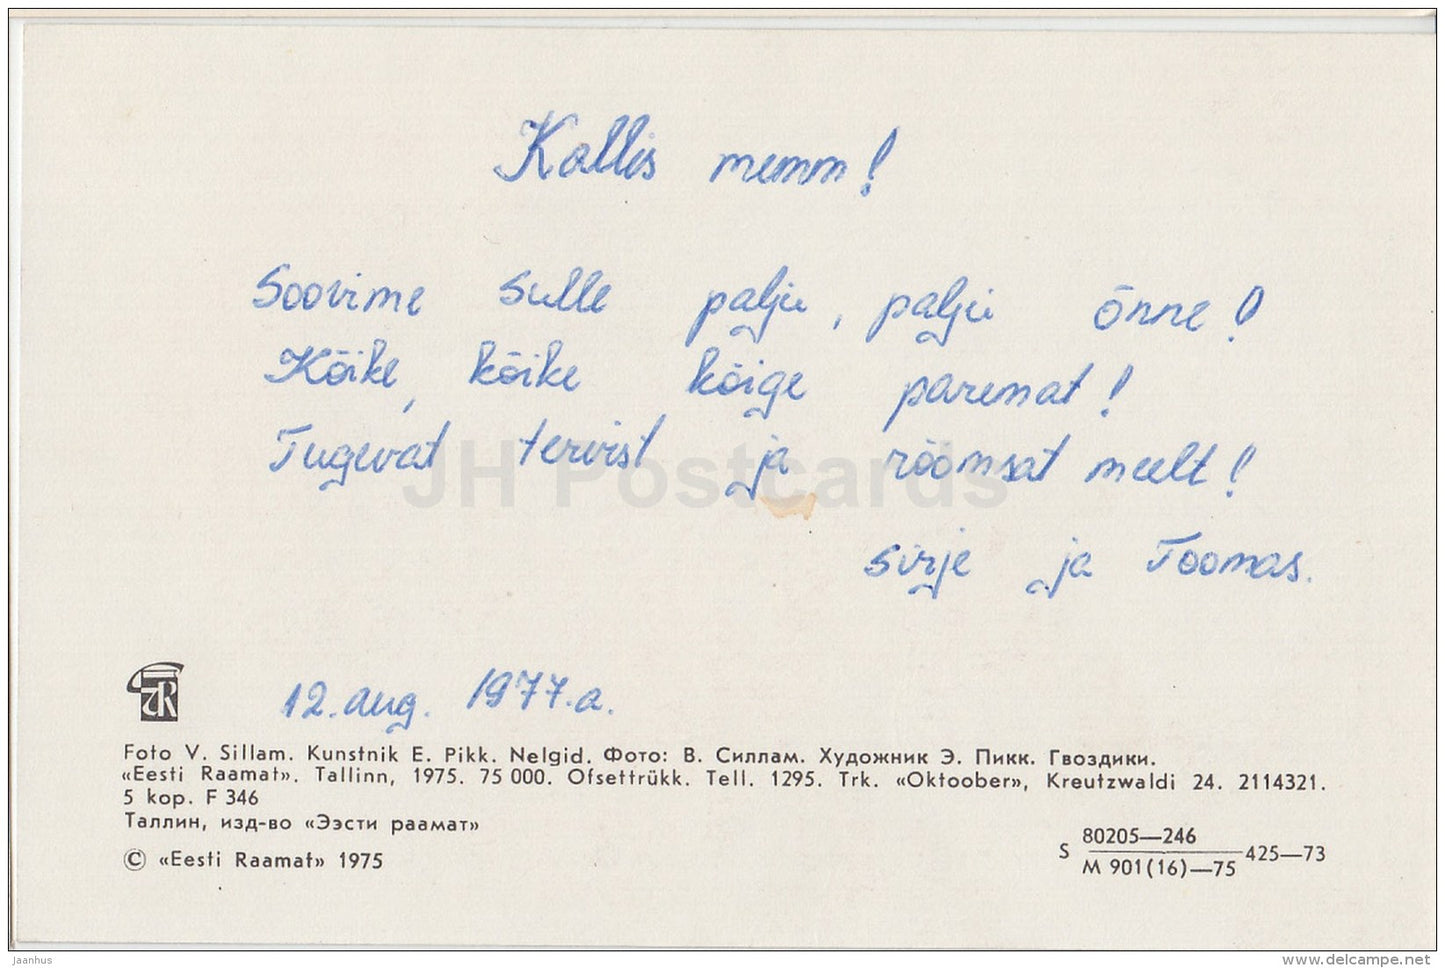 Kallis memm!
Soovime sulle palju, palju õnne!
Kõike, kõike kõige paremat!
Tugevat tervist ja rõõmsat meelt!
JH Postcards
sirje ja Toomas.
12. aug. 1977.a.
Foto V. Sillam. Kunstnik E. Pikk. Nelgid. Фото: В. Силлам. Художник Э. Пикк. Гвоздики.
«Eesti Raamat». Tallinn, 1975. 75 000. Ofsettrükk. Tell. 1295. Trk. «Oktoober», Kreutzwaldi 24. 2114321.
5 kop. F 346
Таллин, изд-во «Ээсти раамат»
© «Eesti Raamat» 1975
S 80205—246
M 901(16)—75 425—73
jaanhus
www.delcampe.net